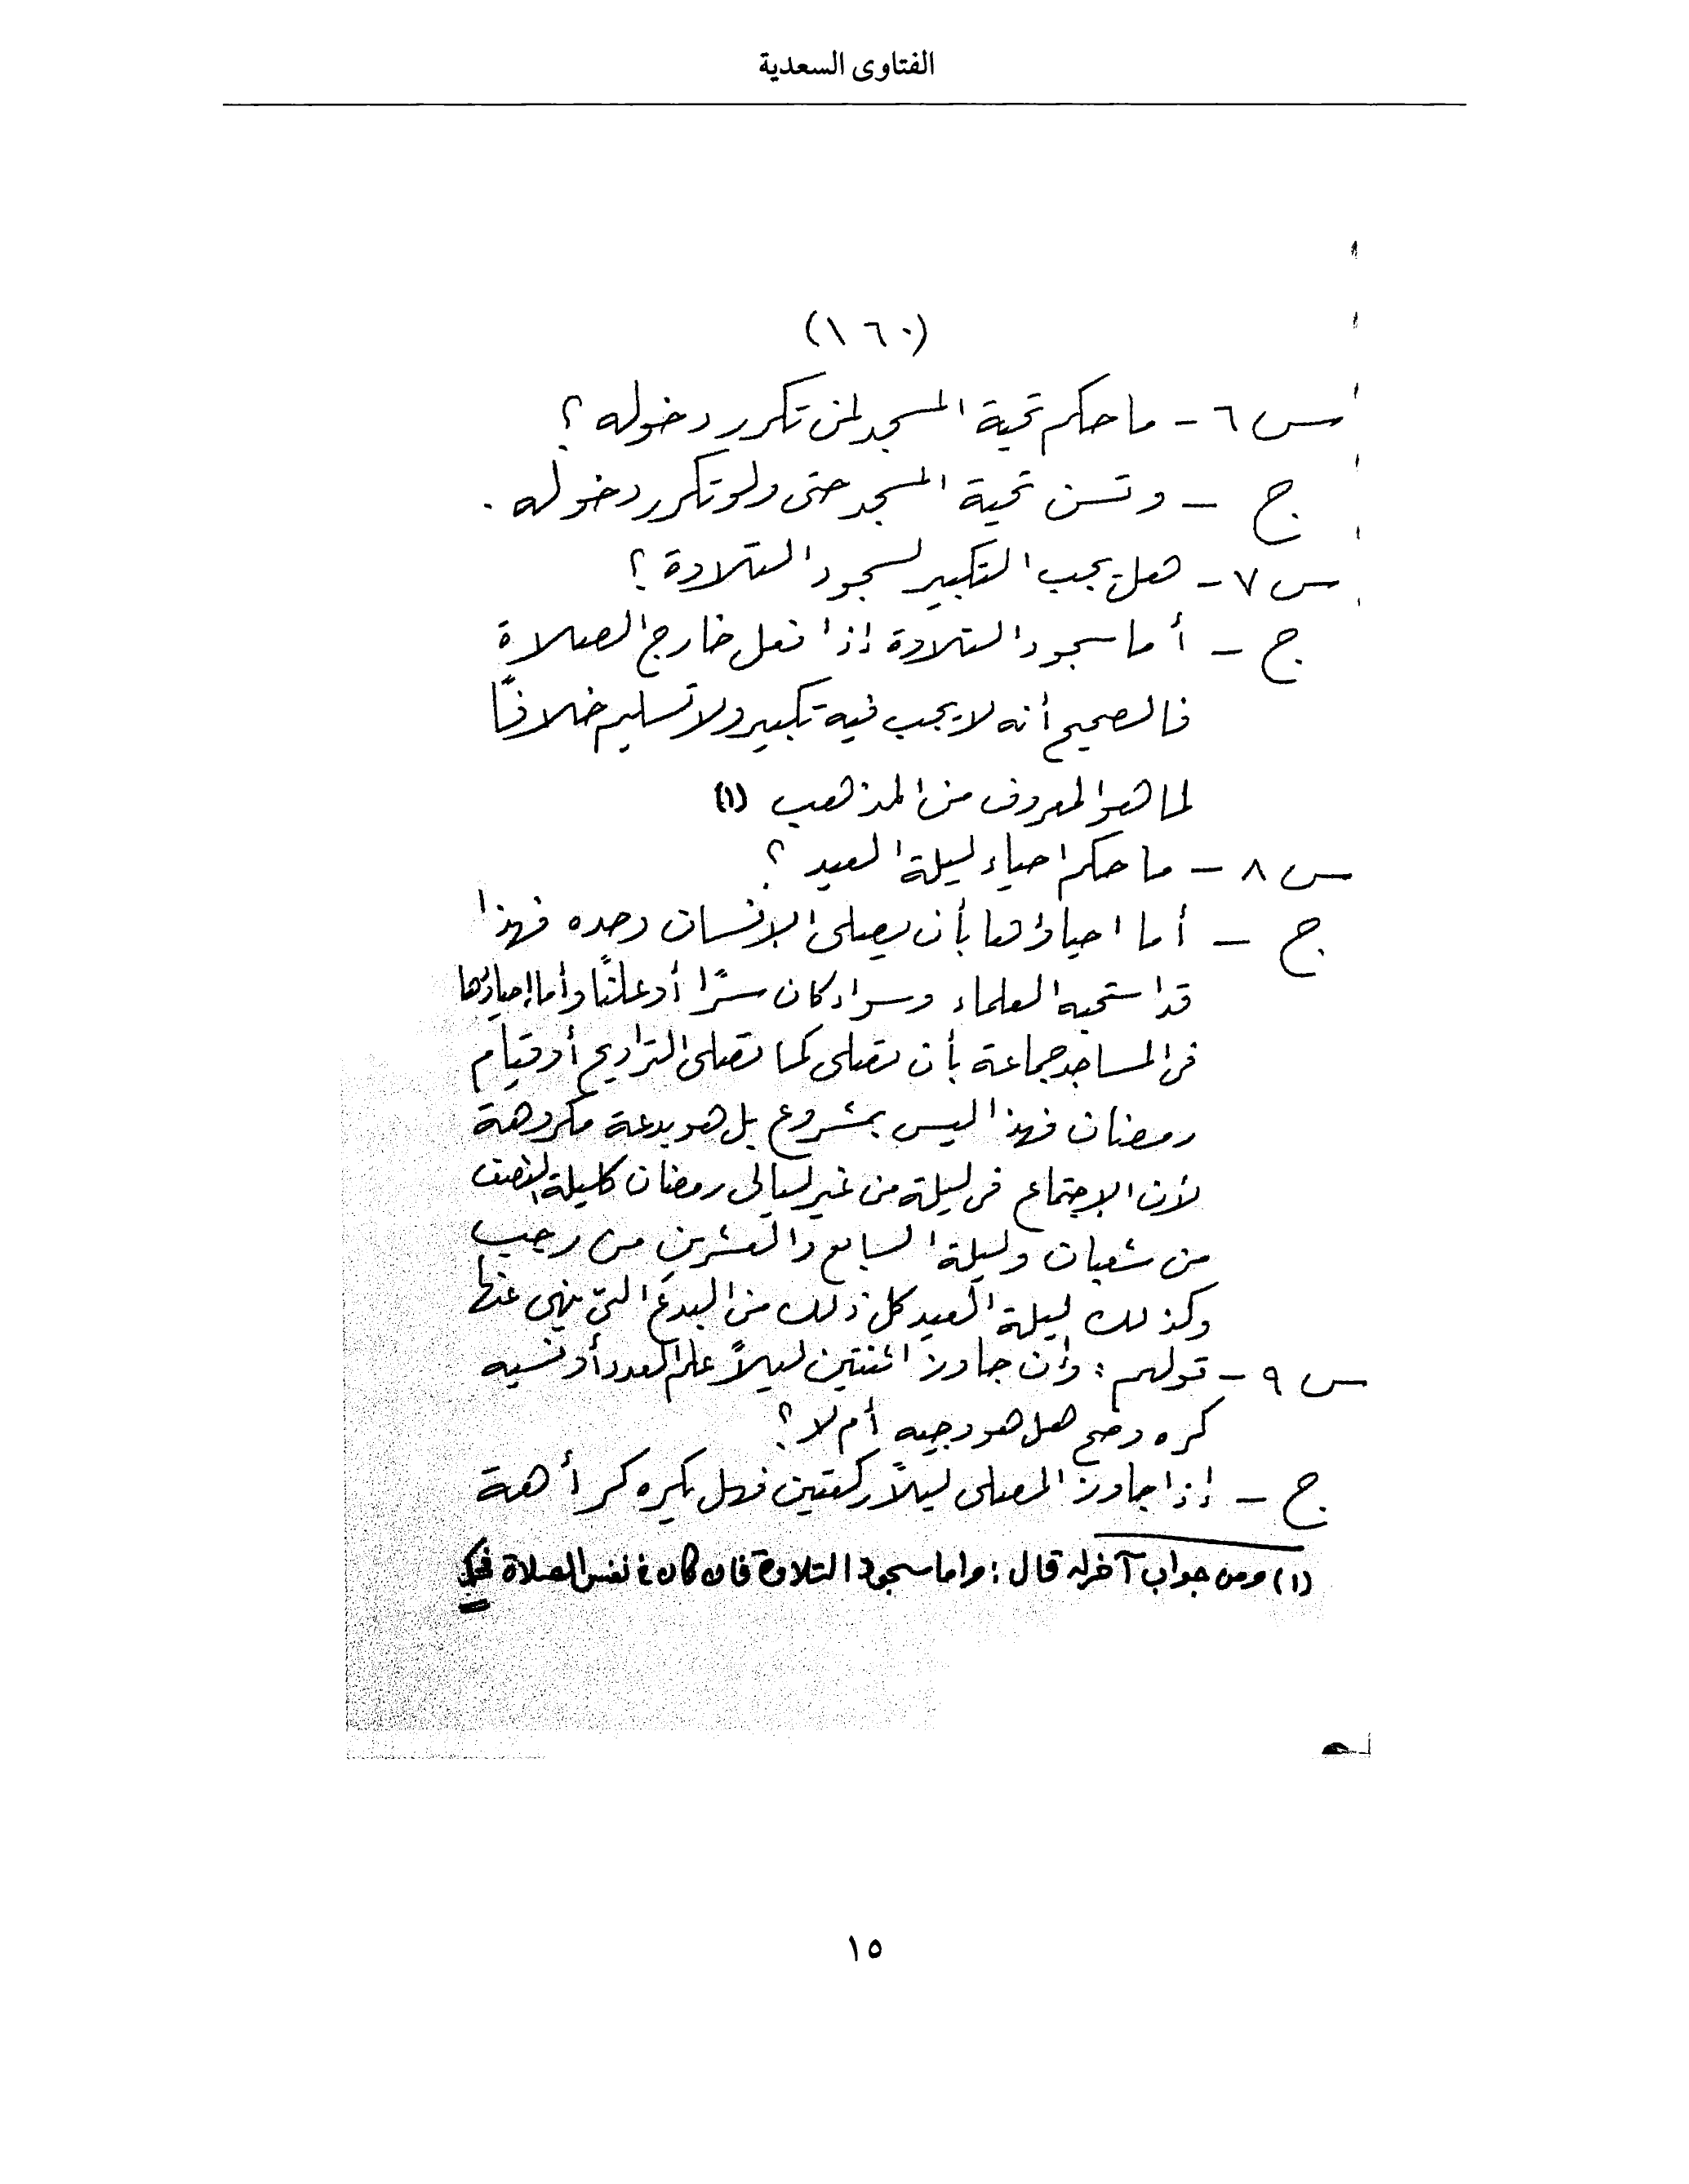 الفتاوى السعدية
(١٦٠)
س ٦ - ما حكم تحية المسجد لمن تكرر دخوله ؟
ج - وتسن تحية المسجد حتى ولو تكرر دخوله .
س ٧ - هل يجب التكبير لسجود التلاوة ؟
ج - أما سجود التلاوة إذا فعل خارج الصلاة
فالصحيح أنه لا يجب فيه تكبير ولا تسليم خلافًا
لما هو المعروف من المذهب (١)
س ٨ - ما حكم احياء ليلة العيد ؟
ج - أما احياؤها بأن يصلى الإنسان وحده فهذا
قد استحبه العلماء وسواء كان سرًا أو علنًا وأما إحياؤها
فى المساجد جماعة بأن تصلى كما تصلى التراويح أو قيام
رمضان فهذا ليس بمشروع بل هو بدعة مكروهة
لأن الإجتماع فى ليلة من غير ليالى رمضان كليلة النصف
من شعبان وليلة السابع والعشرين من رجب
وكذلك ليلة العيد كل ذلك من البدع التى ينهى عنها
س ٩ - قولهم : وإن جاوز اثنتين ليلاً علم العدد أو نسيه
كره وصح هل هو وجيه أم لا ؟
ج - إذا جاوز المصلى ليلاً ركعتين فهل يكره كرأهة
(١) ومن جواب آخر له قال : واما سجود التلاوة فان كان فى نفس الصلاة
١٥